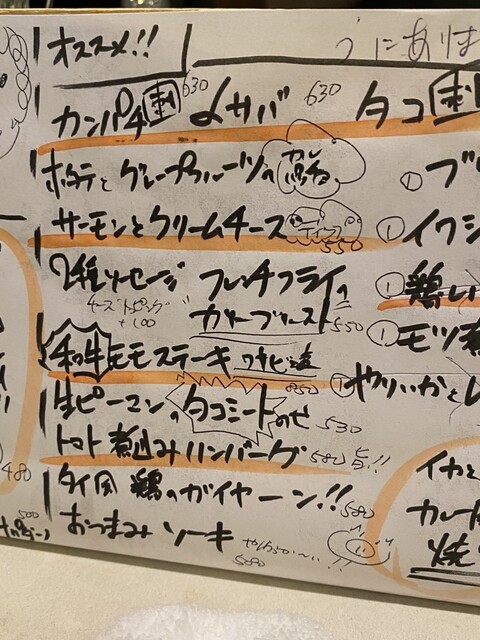 オススメ!!
うにあります
カンパチ刺 630 〆サバ 630 タコ刺
ホタテとグレープフルーツの
サーモンとクリームチーズ 550
2種ソーセージ フレンチフライの
チーズトッピング +100 550
和牛モモステーキ ワサビ塩 850
生ピーマンのタコミートのせ 530
トマト煮込みハンバーグ 580 旨!!
タイ風 鶏のガイヤーン!! 580
おつまみソーキ 580
ブ
イワシ
鶏
モツ煮
やりいかと
イカと
カレー
焼
480
500